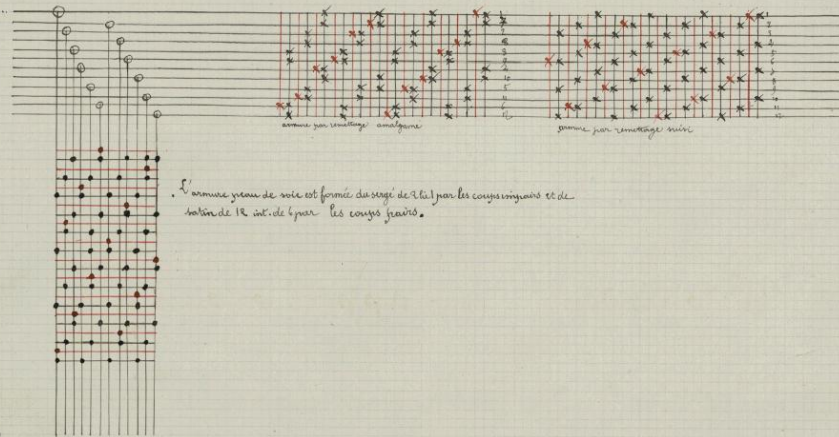 armure par remettage amalgame
armure par remettage suivi
L'armure peau de soie est formée du sergé de 2 là 1 par les coups impairs et de
satin de 12 int. de 6 par les coups pairs.